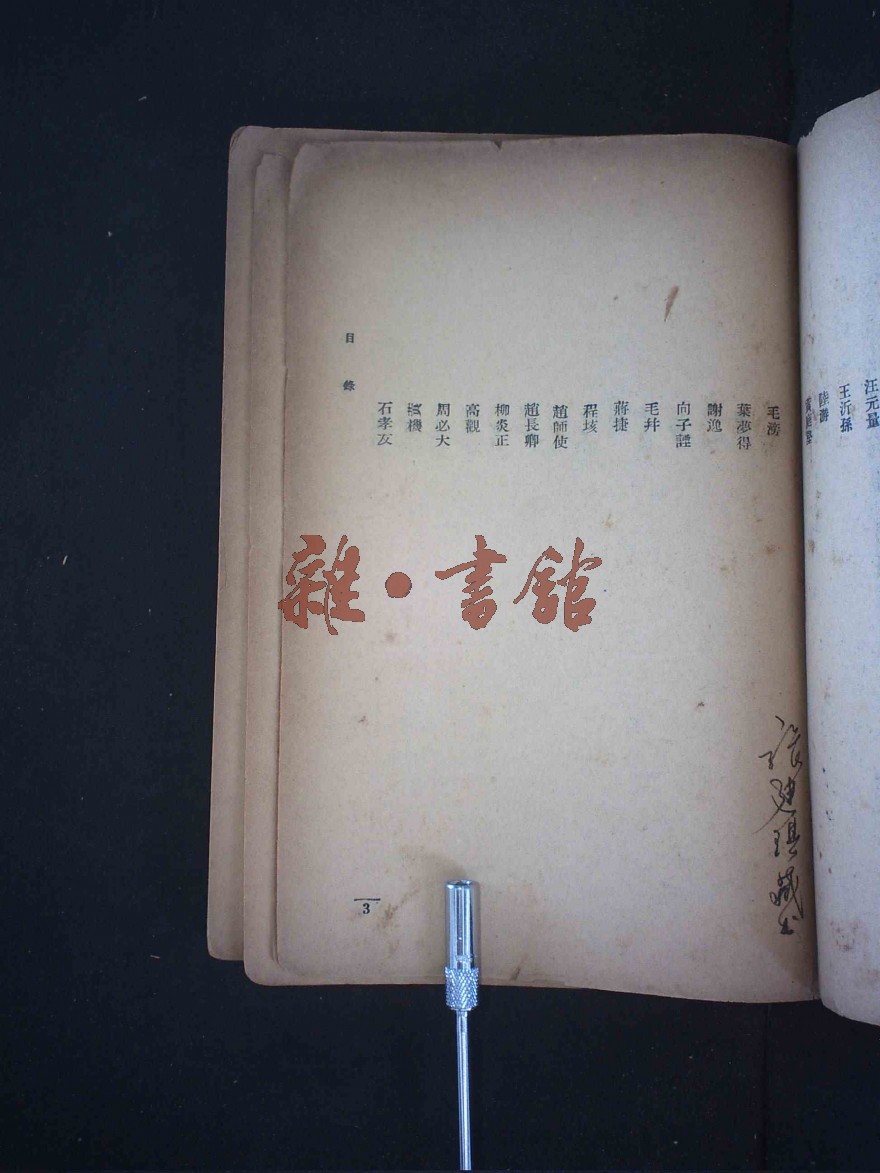 汪元量
王沂孫
陸游
毛滂
葉夢得
謝逸
向子諲
毛幵
蔣捷
程垓
趙師使
趙長卿
柳炎正
高觀
周必大
機
石孝友
目錄
3
雜·書館
張
琪藏書